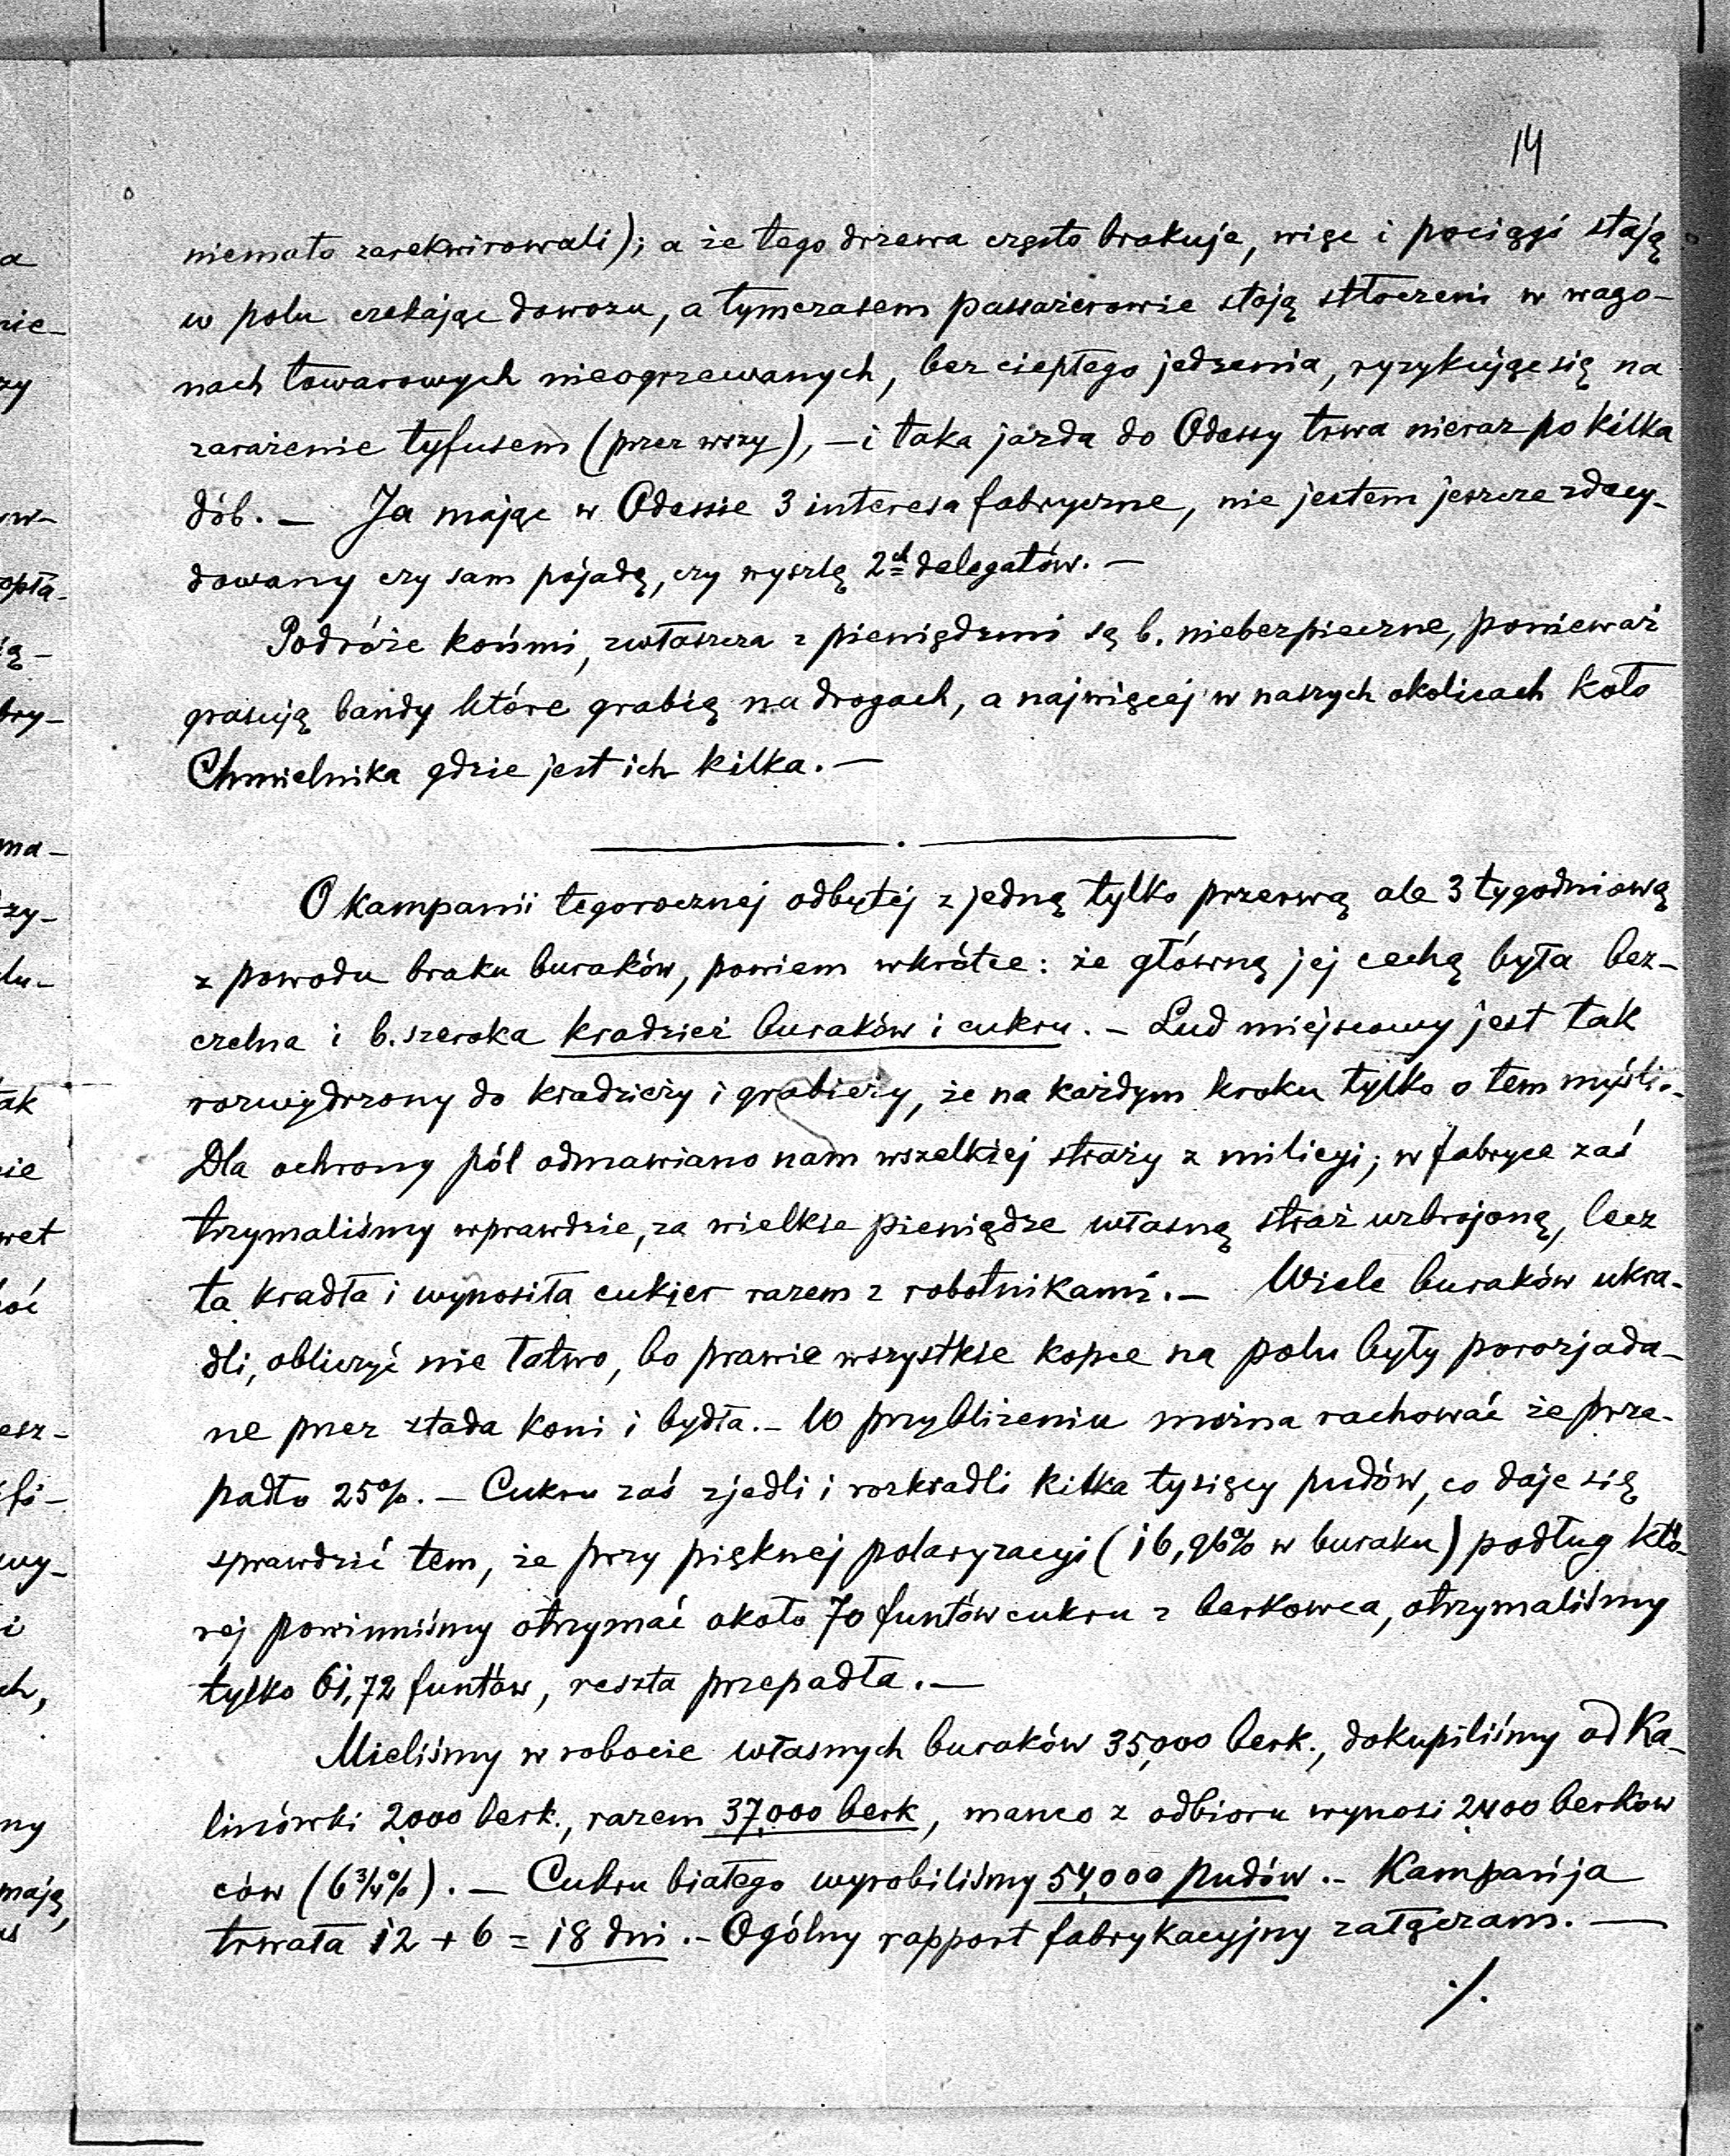 14
niemało zarekwirowali); a że tego drzewa często brakuje, więc i pociągi stają
w polu czekając dowozu, a tymczasem passażerowie stoją stłoczeni w wago-
nach towarowych nieogrzewanych, bez ciepłego jedzenia, ryzykując się na
zarażenie tyfusem (przez wszy), — i taka jazda do Odessy trwa nieraz po kilka
dób. — Ja mając w Odessie 3 interesa fabryczne, nie jestem jeszcze zdecy-
dowany czy sam pojadę, czy wyszlę 2ch delegatów. —
Podróże końmi, zwłaszcza z pieniędzmi są b. niebezpieczne, ponieważ
grasują bandy które grabią na drogach, a najwięcej w naszych okolicach koło
Chmielnika gdzie jest ich kilka. —
O kampanii tegorocznej odbytej z jedną tylko przerwą ale 3 tygodniową
z powodu braku buraków, powiem wkrótce: że główną jej cechą była bez-
czelna i b. szeroka kradzież buraków i cukru. — Lud miejscowy jest tak
rozwydrzony do kradzieży i grabieży, że na każdym kroku tylko o tem myśli. -
Dla ochrony pól odmawiano nam wszelkiej straży z milicyi; w fabryce zaś
trzymaliśmy wprawdzie, za wielkie pieniądze własną straż uzbrojoną, lecz
ta kradła i wynosiła cukier razem z robotnikami. — Wiele buraków ukra-
dli, obliczyć nie łatwo, bo prawie wszystkie kopce na polu były porozjada-
ne przez stada koni i bydła. — W przybliżeniu można rachować że prze-
padło 25%. — Cukru zaś zjedli i rozkradli kilka tysięcy pudów, co daje się
sprawdzić tem, że przy pięknej polaryzacyi (16,96% w buraku) podług któ-
rej powinniśmy otrzymać około 70 funtów cukru z berkowca, otrzymaliśmy
tylko 61,72 funtów, reszta przepadła. —
Mieliśmy w robocie własnych buraków 35,000 berk., dokupiliśmy od Ka-
linówki 2,000 berk., razem 37,000 berk, manco z odbioru wynosi 2,400 berkow
ców (6 3/4%). — Cukru białego wyrobiliśmy 54,000 pudów. — Kampanija
trwała 12 + 6 = 18 dni. — Ogólny rapport fabrykacyjny załączam. —
./.